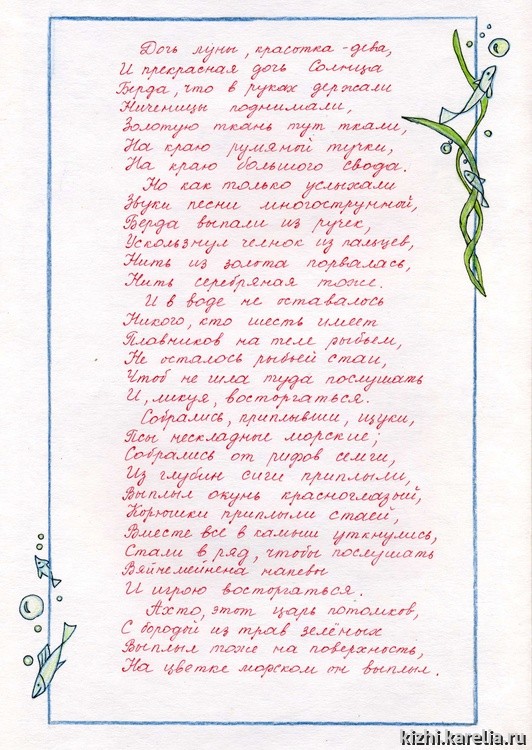 Дочь луны, красотка-дева,
И прекрасная дочь Солнца
Берда, что в руках держали
Ниченицы поднимали,
Золотую ткань тут ткали,
На краю румяной тучки,
На краю большого свода.
Но как только услыхали
Звуки песни многострунной,
Берда выпали из ручек,
Ускользнул челнок из пальцев,
Нить из золота порвалась,
Нить серебряная тоже.
И в воде не оставалось
Никого, кто шесть имеет
Плавников на теле рыбьем,
Не осталось рыбьей стаи,
Чтоб не шла туда послушать
И, ликуя, восторгаться.
Собрались, приплывши, щуки,
Псы нескладные морские;
Собрались от рифов семги,
Из глубин сиги приплыли,
Выплыл окунь красноглазый,
Корюшки приплыли стаей,
Вместе все в камыш уткнулись,
Стали в ряд, чтобы послушать
Вяйнемейнена напевы
И игрою восторгаться.
Ахто, этот царь потоков,
С бородой из трав зелёных
Выплыл тоже на поверхность,
На цветке морском он выплыл.
kizhi.karelia.ru